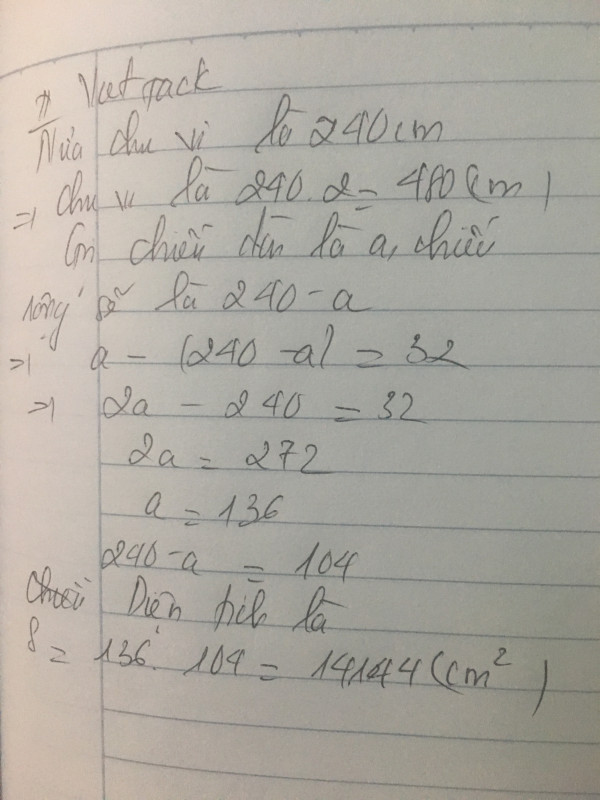 Nửa chu vi là 240cm
=> chu vi là 240.2 = 480(cm)
Gọi chiều dài là a, chiều
rộng sẽ là 240-a
=> a - (240 - a) = 32
=> 2a - 240 = 32
2a = 272
a = 136
240-a = 104
Diện tích là
S = 136. 104 = 14144 (cm²)